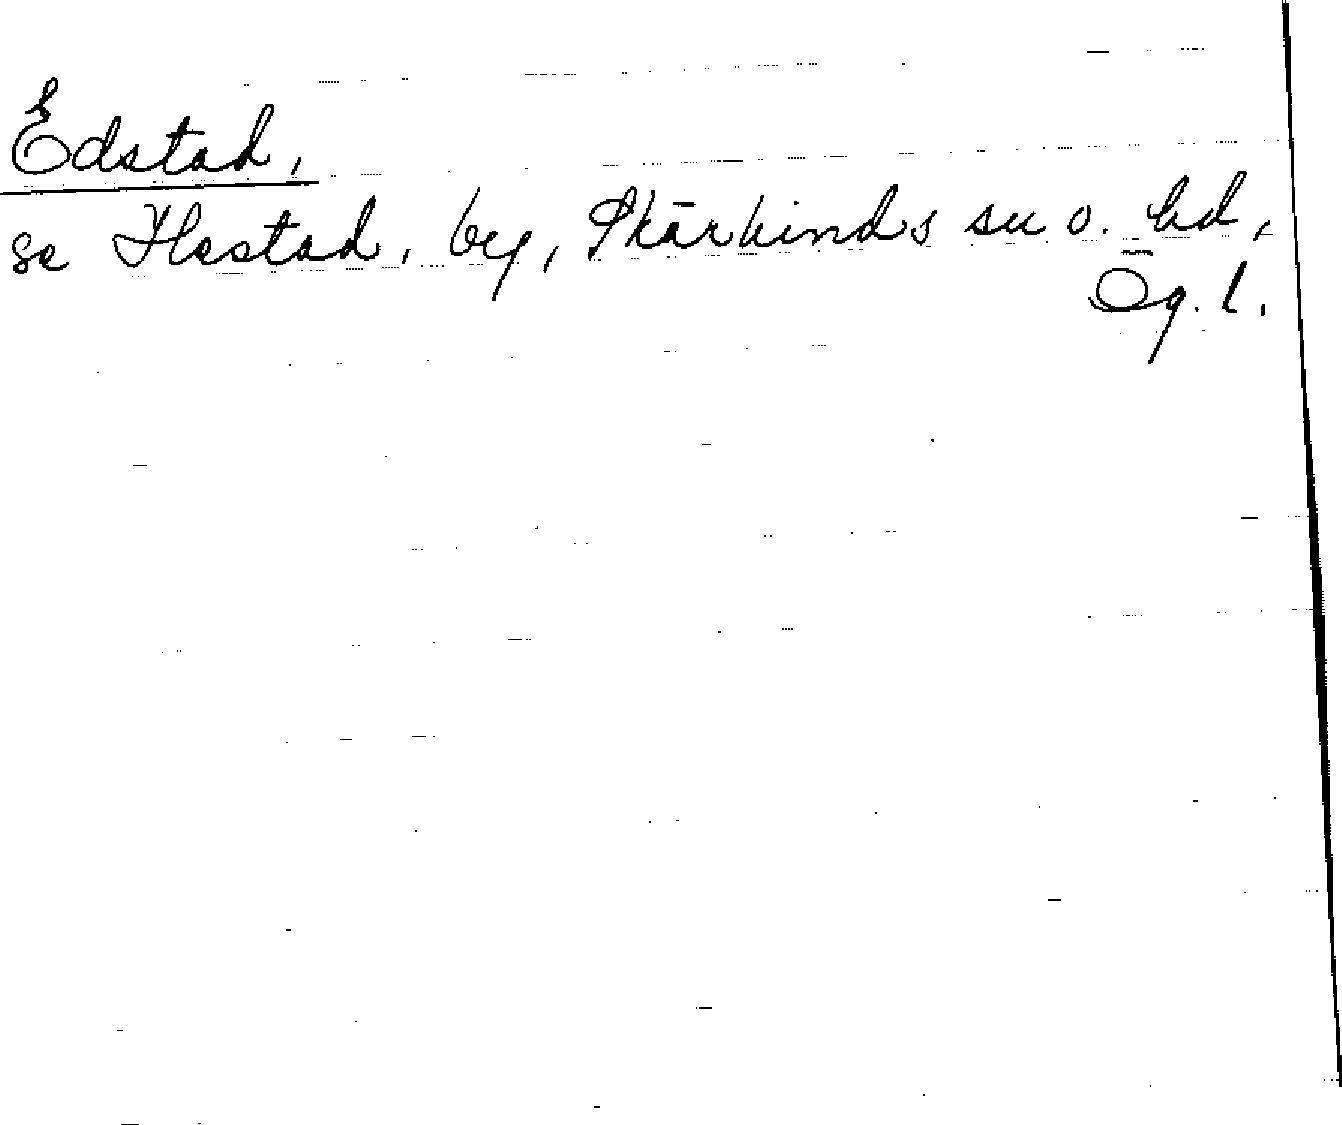 Edstad,
se Ilestad, by, Skärkinds sn o. hd,
Ög. l.